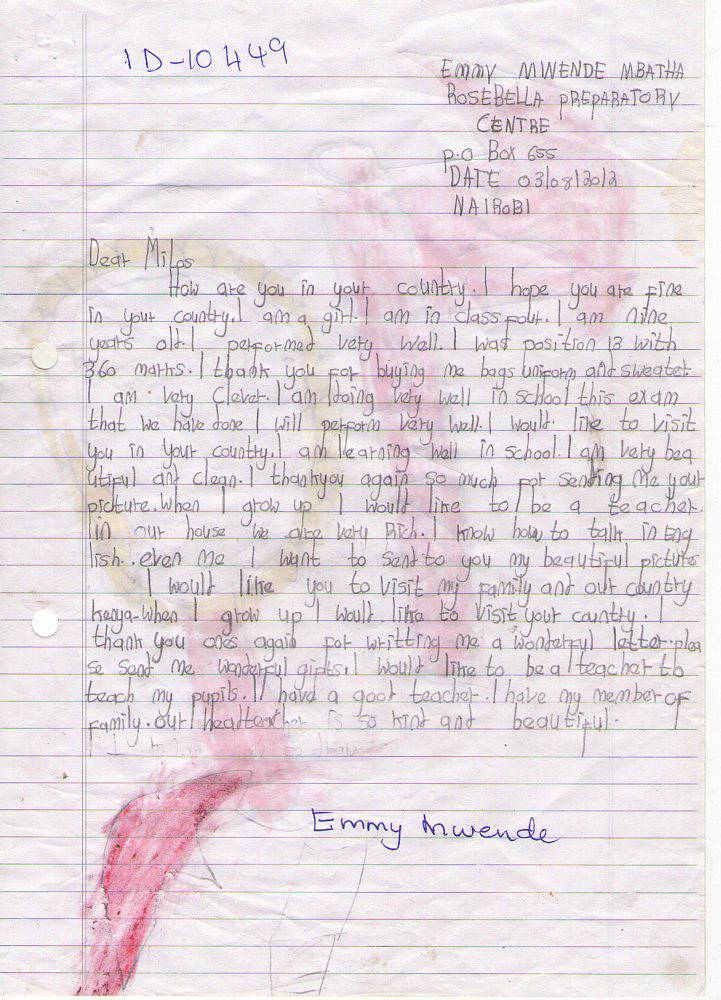 ID-10449
Emmy MWENDE MBATHA
ROSEBELLA PREPARATORY
CENTRE
p.o Box 655
DATE 03/08/2012
NAIROBI
Dear Milos
How are you in your country. I hope you are fine
in your country. I am a girl. I am in class four. I am nine
years old. I performed very well. I was position 13 with
360 marks. I thank you for buying me bags uniform and sweater.
I am very clever. I am doing very well in school this exam
that we have done I will perform very well. I would like to visit
you in your country. I am learning well in school. I am very bea
utiful and clean. I thankyou again so much for sending me your
picture. When I grow up I would like to be a teacher.
in our house we are very Rich. I know how to talk in Eng
lish. even me I want to send to you my beautiful pictures
I would like you to visit my family and our country
kenya. When I grow up I would like to visit your country. I
thank you ones again for writting me a wonderful letter. plea
se send me wonderful gifts. I would like to be a teacher to
teach my pupils. I have a good teacher. I have my member of
family. our headteacher is so kind and beautiful.
Emmy Mwende